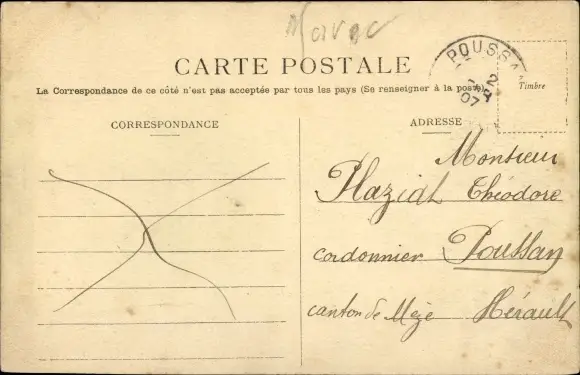 Maroc
CARTE POSTALE
La Correspondance de ce côté n'est pas acceptée par tous les pays (Se renseigner à la poste)
POUSSA
2
07
Timbre
CORRESPONDANCE
ADRESSE
Monsieur
Plazial Théodore
cordonnier Poussan
canton de Mèze Hérault